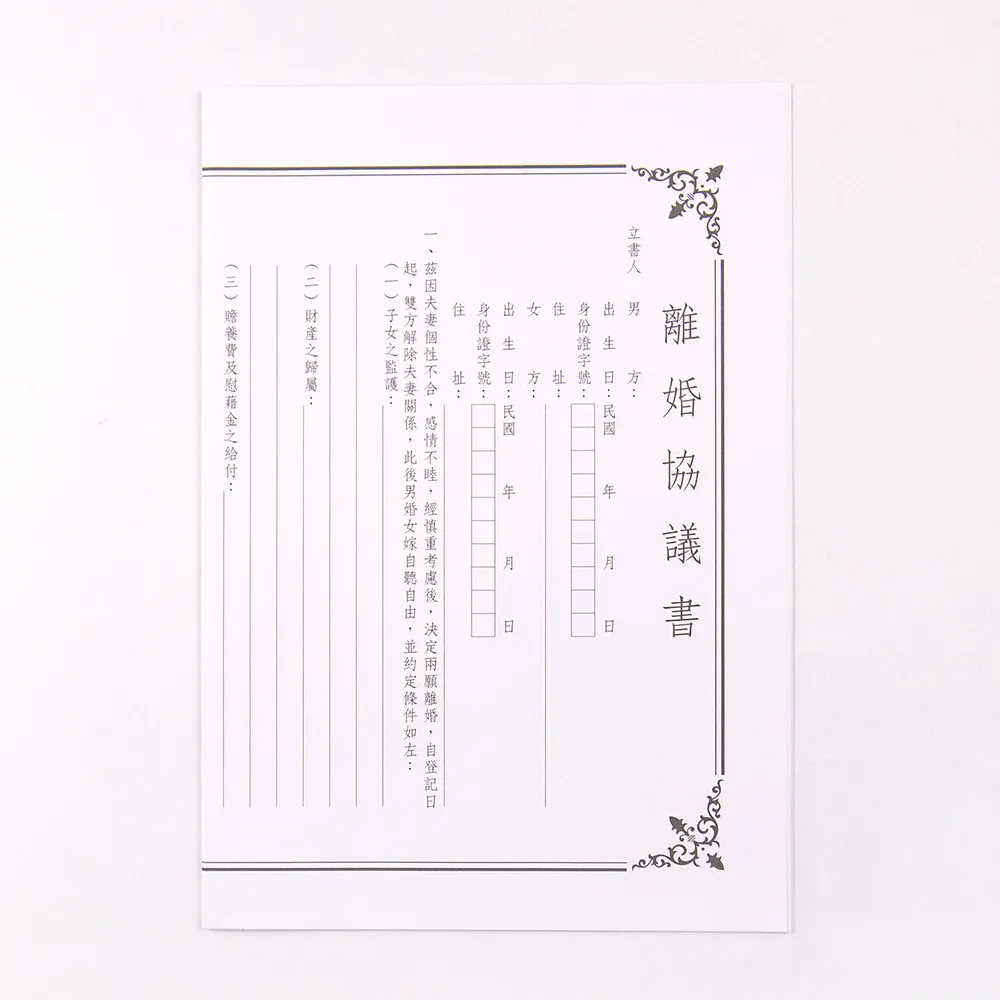 離婚協議書
立書人 男方：
出生日：民國 年 月 日
身份證字號：
住址：
女方：
出生日：民國 年 月 日
身份證字號：
住址：
一、茲因夫妻個性不合，感情不睦，經慎重考慮後，決定兩願離婚，自登記日
起，雙方解除夫妻關係，此後男婚女嫁自聽自由，並約定條件如左：
（一）子女之監護：
（二）財產之歸屬：
（三）贍養費及慰藉金之給付：